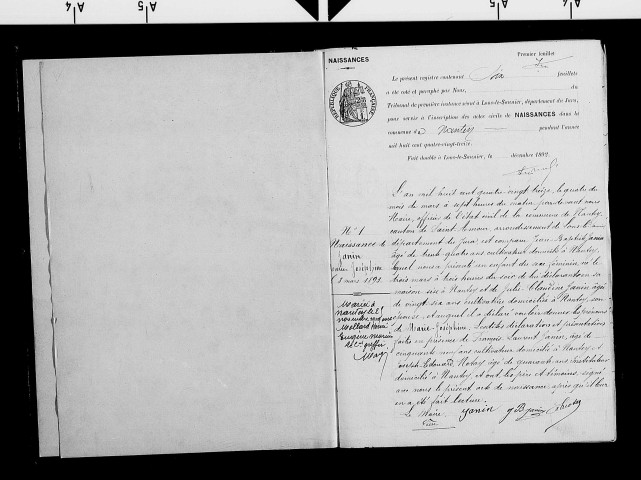 NAISSANCES
Premier feuillet
Le présent registre contenant Six feuillets
a été coté et paraphé par Nous, du
Tribunal de première instance séant à Lons-le-Saunier, département du Jura,
pour servir à l'inscription des actes civils de NAISSANCES dans la
commune de Nantey pendant l'année
mil huit cent quatre-vingt-treize.
Fait double à Lons-le-Saunier, le décembre 1892.
RÉPUBLIQUE FRANÇAISE
N° 1
Naissance de
Janin
Marie Joséphine
3 mars 1893
Mariée à
Nantey le
novembre
Eugène
L'an mil huit cent quatre-vingt treize, le quatre du
mois de mars à sept heures du matin, par devant nous
Maire, officier de l'état civil de la commune de Nantey
canton de Saint-Amour, arrondissement de Lons-le-Saunier
département du Jura, est comparu Jean-Baptiste Janin
âgé de trente-quatre ans cultivateur domicilié à Nantey,
lequel nous a présenté un enfant du sexe féminin, né le
trois mars à trois heures du soir de lui déclarant en sa
maison sise à Nantey et de Julie Claudine Janin âgée
de vingt-six ans cultivatrice domiciliée à Nantey son
épouse, et auquel il a déclaré vouloir donner les prénoms
de Marie-Joséphine. Lesdites déclaration et présentation
faites en présence de François Laurent Janin, âgé de
cinquante neuf ans cultivateur domicilié à Nantey et
Joseph Edouard âgé de quarante ans instituteur
domicilié à Nantey et ont les père et témoins, signé
avec nous le présent acte de naissance, après qu'il leur
en a été fait lecture.
Le Maire Janin J B Janin
A 4 A 5 A 5 A 4